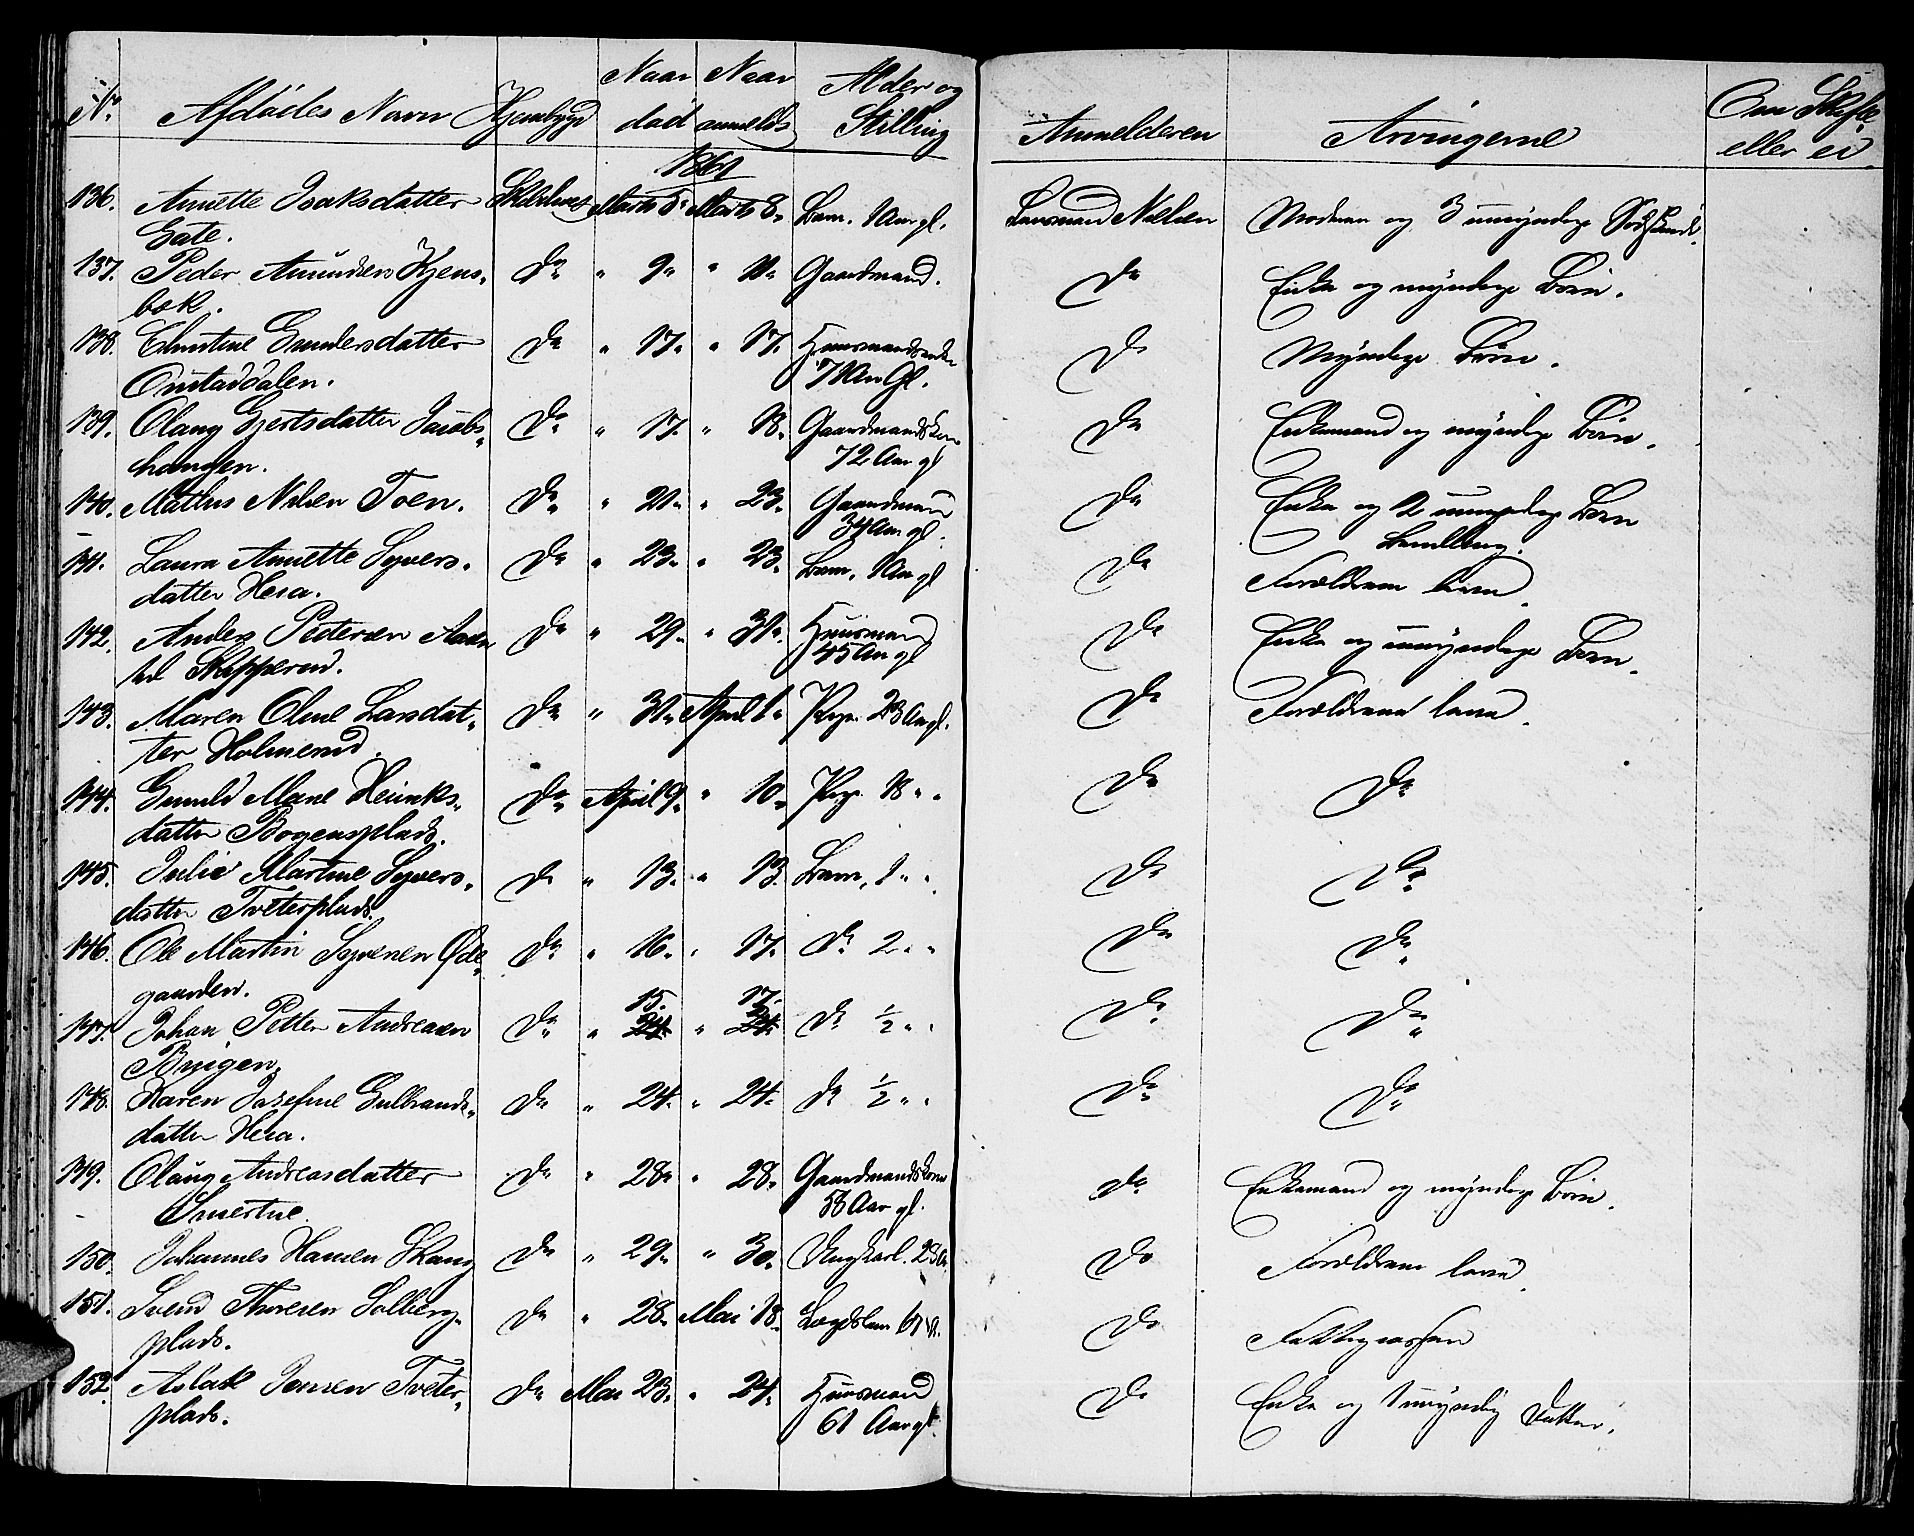 No. Afdødes Navn Hjembygd Naar død Naar anmeldt Alder og Stilling Anmelderen Arvingerne Om Skifte eller ei.
1861
136. Annette Isaksdatter Skibtvet Marts 5. Marts 8. Barn. 1 Aar gl. Lensmand Nielsen Moderen og 3 umyndige Sødskende.
Gate.
137. Peder Amundsen Hjens- Do " 9. " 11. Gaardmand. Do Enke og myndige Børn.
bæk.
138. Christine Gundersdatter Do " 17. " 17. Huusmandsenke Do Myndige Børn.
Onstaddalen. 71 Aar Gl.
139. Olaug Gjertsdatter Jacobs- Do " 17. " 18. Gaardmandskone Do Enkemand og myndige Børn.
haugen. 72 Aar gl
140. Mathis Nilsen Toen. Do " 21. " 23. Gaardmand Do Enke og 2 umyndige Børn
34 Aar gl. Samling.
141. Laura Annette Syvers- Do " 23. " 23. Barn, 1 Aar gl Do Forældrene leve
datter Hera.
142. Anders Pedersen Aasen Do " 29. " 31. Huusmand Do Enke og umyndige Børn.
ved Skipperud. 45 Aar gl
143. Maren Oline Larsdat- Do " 31. April 1. Pige. 23 Aar gl. Do Forældrene leve.
ter Holmerud.
144. Gunild Marie Henriks- Do April 9. " 10. Pige 18 " " Do Do
datter Bogensplads.
145. Julie Martine Syvers- Do " 13. " 13. Barn, 1 " " Do Do
datter Tveterplads.
146. Ole Martin Syversen Øde- Do " 16. " 17. Do 2 " " Do Do
gaarden. 15. 17.
147. Johan Petter Andreasen Do " 24. " 24. Do ½ " " Do Do
Bryigen.
148. Karen Josefine Gulbrands- Do " 24. " 24. Do ½ " " Do Do
datter Hera.
149. Olaug Andreasdatter Do " 28. " 28. Gaardmandskone Do Enkemand og myndige Børn.
58 Aar gl.
150. Johannes Hansen Skaug Do " 29. " 30. Ungkarl. 23 A. Do Forældrene leve
151. Svend Thoresen Solberg- Do " 28. Mai 18. Lægdslem 61 A. Do Fattigcassen
plads.
152. Aslak Jensen Tveter- Do Mai 23. " 24. Huusmand Do Enke og 1 umyndig Datter.
plads. 61 Aar gl.